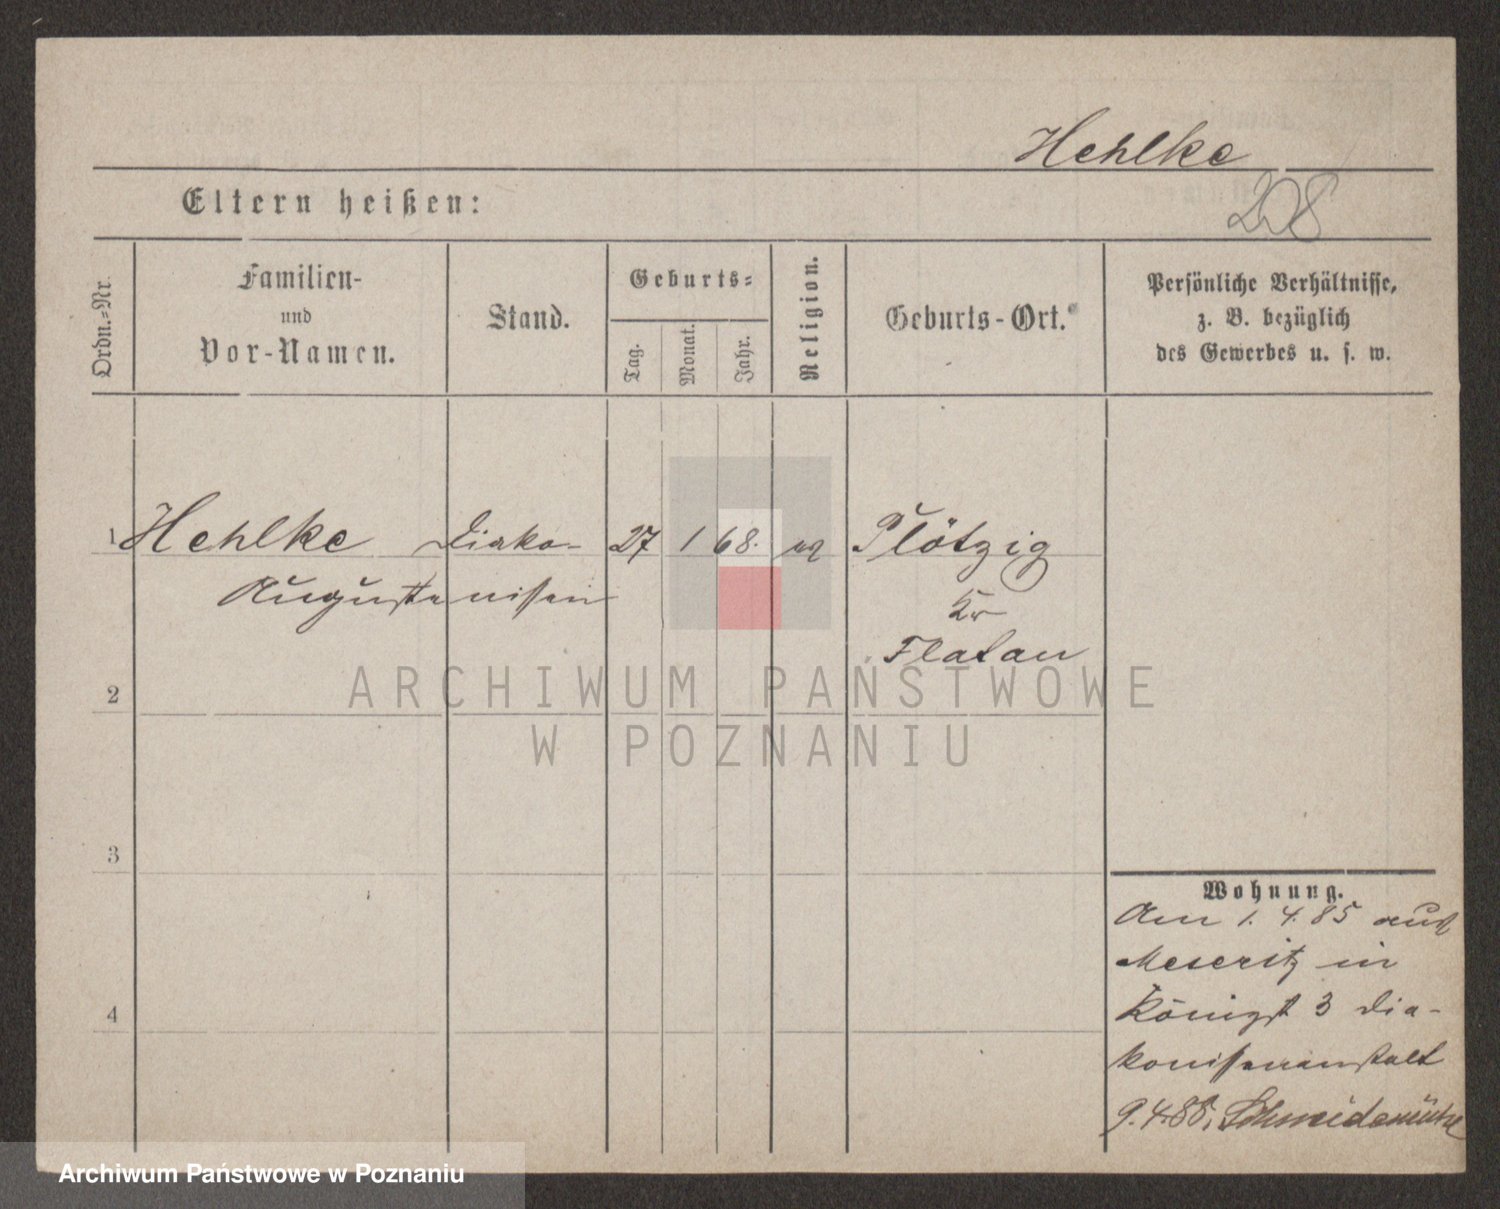 Hehlke
Eltern heißen:
208
Ordn.-Nr.
Familien-
und
Vor-Namen.
Stand.
Geburts-
Tag.
Monat.
Jahr.
Religion.
Geburts-Ort.
Persönliche Verhältnisse,
z. B. bezüglich
des Gewerbes u. s. w.
1 Hehlke Diako- 27 1 68. ev Plötzig
Auguste nissin
Kr
Flatau
ARCHIWUM PAŃSTWOWE
W POZNANIU
2
3
4
Wohnung.
Am 1. 4. 85 aus
Meseritz in
Königst 3 Dia-
konissenanstalt
9.4.88. Schneidemühl
Archiwum Państwowe w Poznaniu